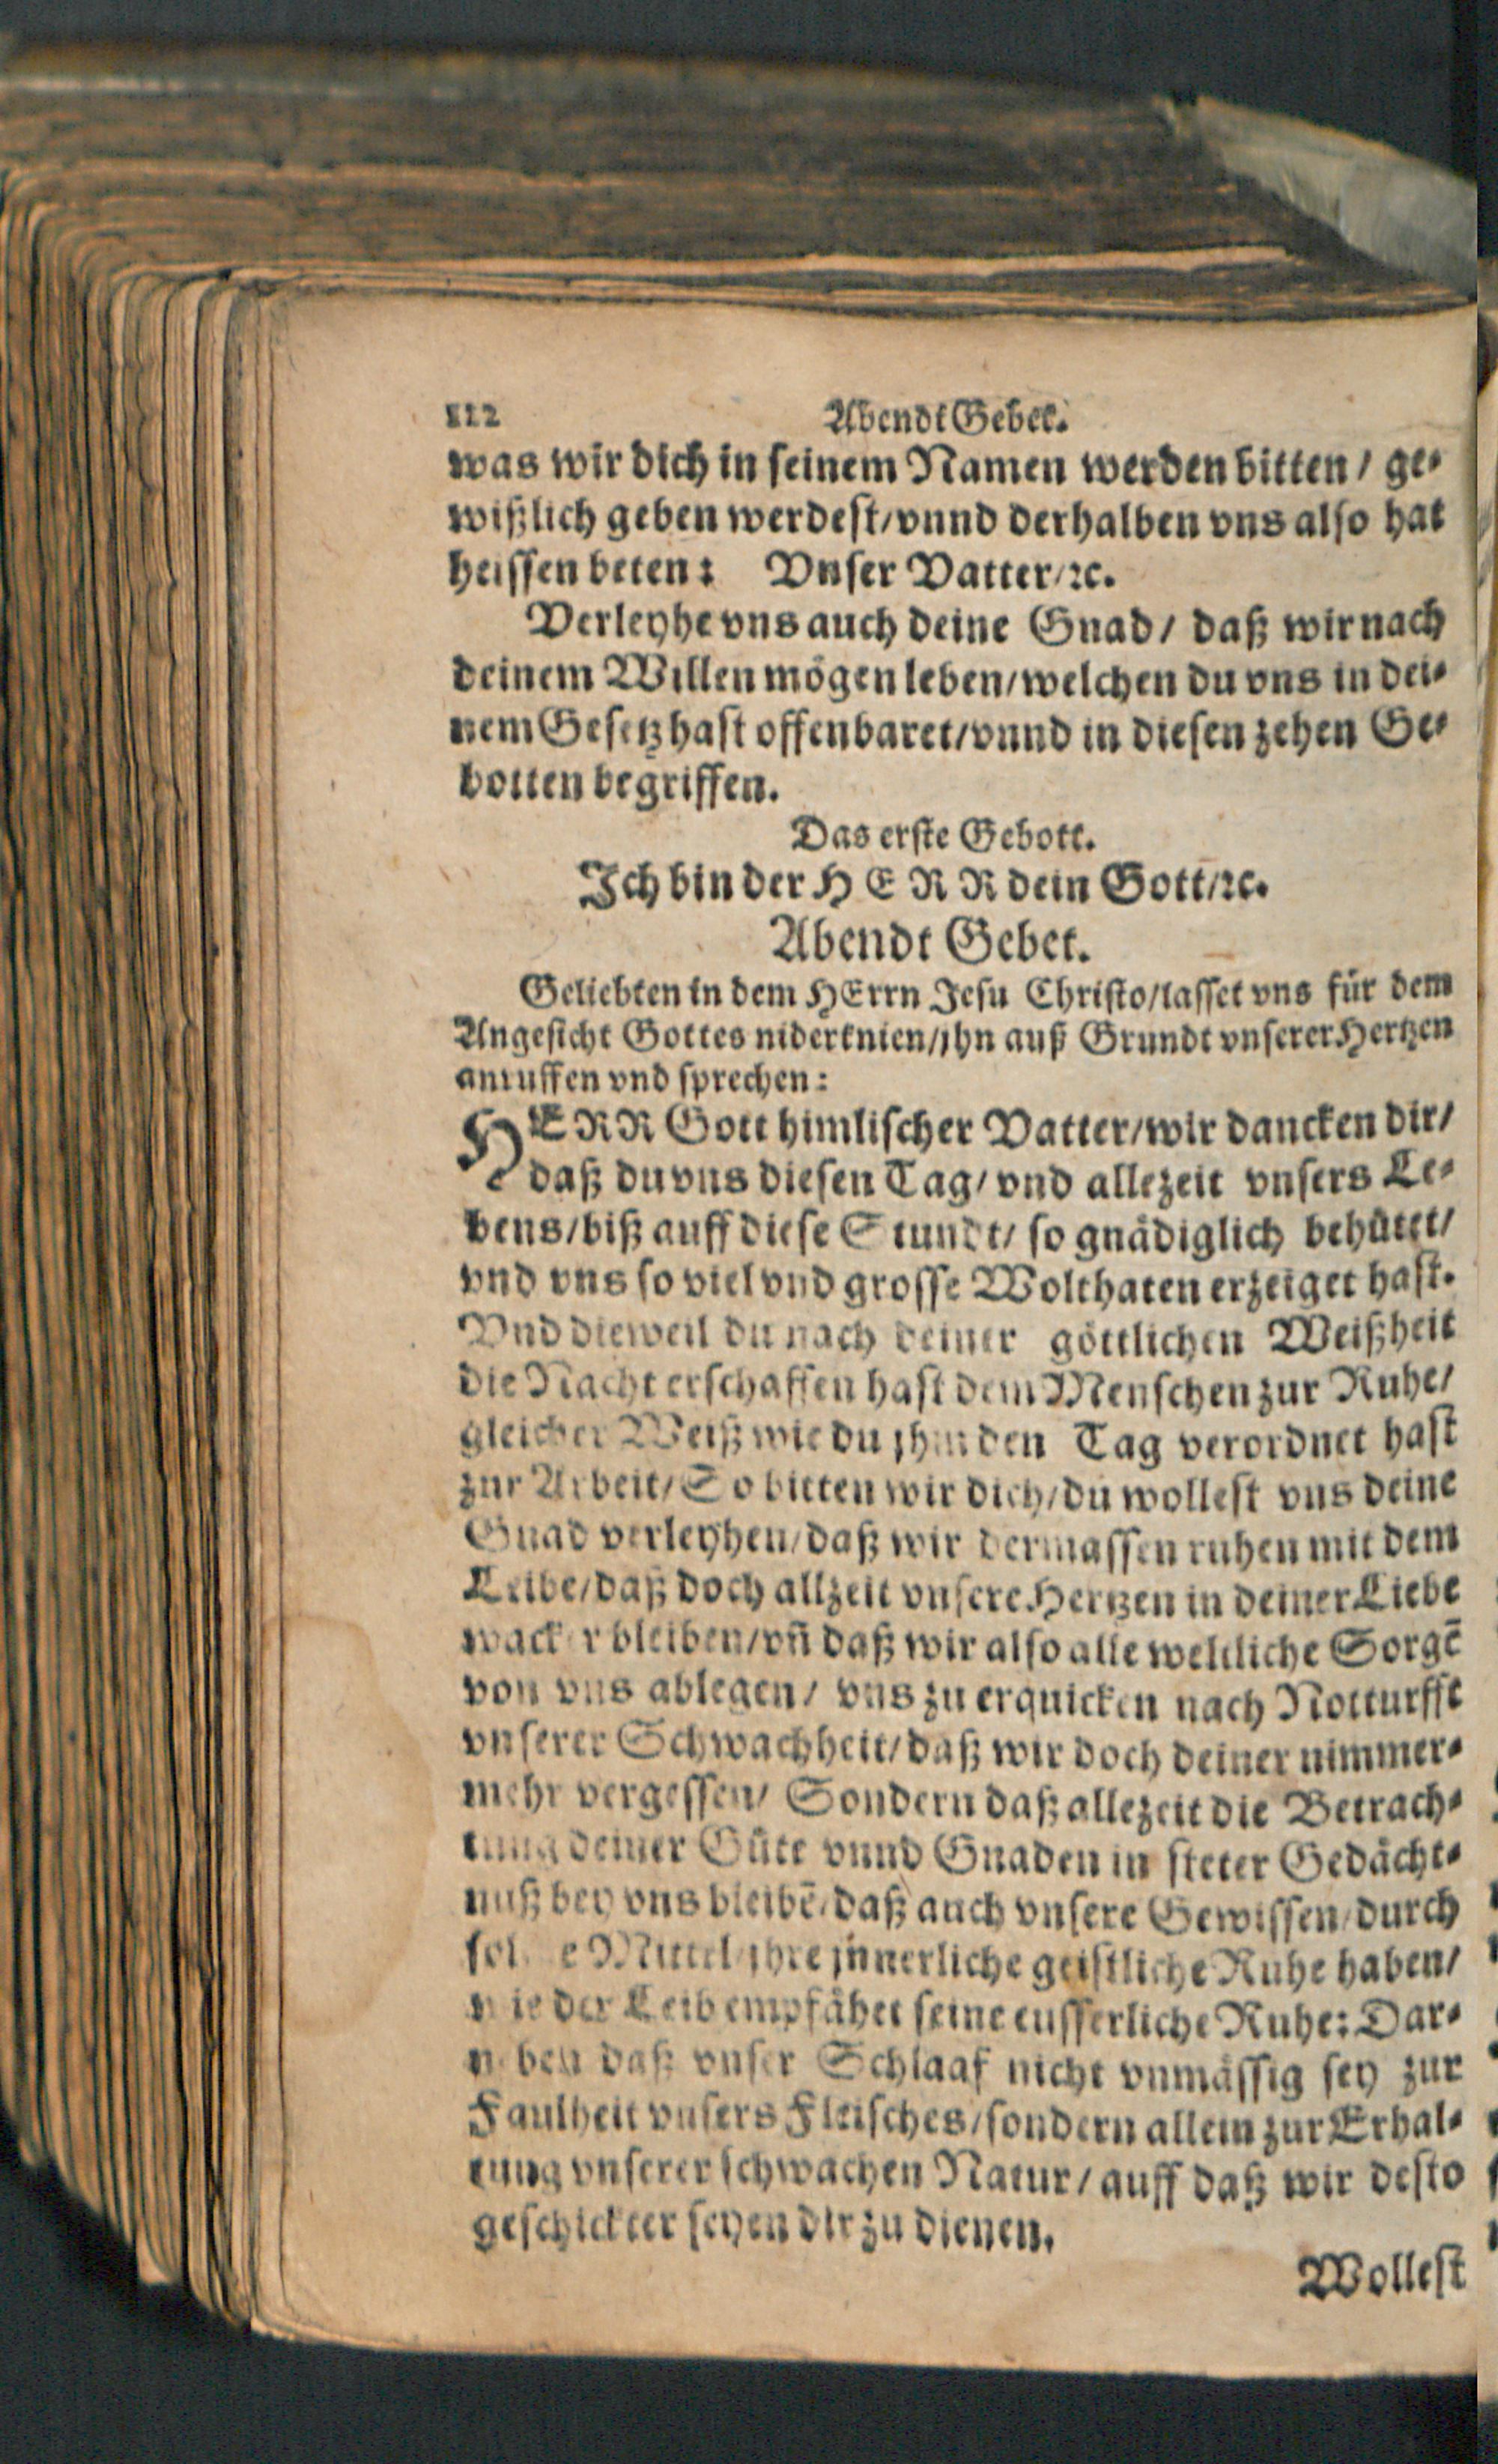 112 Abendt Gebet.
was wir dich in seinem Namen werden bitten / ge-
wißlich geben werdest/vnnd derhalben vns also hat
heissen beten: Vnser Vatter/ꝛc.
Verleyhe vns auch deine Gnad/ daß wir nach
deinem Willen mögen leben/welchen du vns in dei-
nem Gesetz hast offenbaret/vnnd in diesen zehen Ge-
botten begriffen.
Das erste Gebott.
Ich bin der HERR dein Gott/ꝛc.
Abendt Gebet.
Geliebten in dem HErrn Jesu Christo/lasset vns für dem
Angesicht Gottes niderknien/jhn auß Grundt vnserer Hertzen
anruffen vnd sprechen:
HERR Gott himlischer Vatter/wir dancken dir/
daß du vns diesen Tag/ vnd allezeit vnsers Le-
bens/biß auff diese Stundt/ so gnädiglich behütet/
vnd vns so viel vnd grosse Wolthaten erzeiget hast.
Vnd dieweil du nach deiner göttlichen Weißheit
die Nacht erschaffen hast dem Menschen zur Ruhe/
gleicher Weiß wie du jhm den Tag verordnet hast
zur Arbeit/So bitten wir dich/du wollest vns deine
Gnad verleyhen/daß wir dermassen ruhen mit dem
Leibe/daß doch allzeit vnsere Hertzen in deiner Liebe
wacker bleiben/vn̄ daß wir also alle weltliche Sorgē
von vns ablegen/ vns zu erquicken nach Notturfft
vnserer Schwachheit/daß wir doch deiner nimmer-
mehr vergessen/ Sondern daß allezeit die Betrach-
tung deiner Güte vnnd Gnaden in steter Gedächt-
nuß bey vns bleibē/daß auch vnsere Gewissen/durch
solche Mittel/jhre jnnerliche geistliche Ruhe haben/
wie der Leib empfähet seine eusserliche Ruhe: Dar-
neben daß vnser Schlaaf nicht vnmässig sey zur
Faulheit vnsers Fleisches/sondern allein zur Erhal-
tung vnserer schwachen Natur/auff daß wir desto
geschickter seyen dir zu dienen.
Wollest